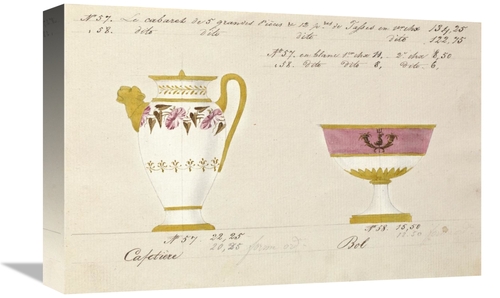 N° 57. Le cabaret de 5 grandes Pièces et 12 p.res de Tasses en 1er chx 139,25
" 58. dito dito dito 122,75
N° 57. en blanc 1er chx 11, 2e chx 8,50
" 58. Dito Dito 8, Dito 6,
N° 57. 22,25
20,25
Cafetière
N° 58. 15,50
Bol